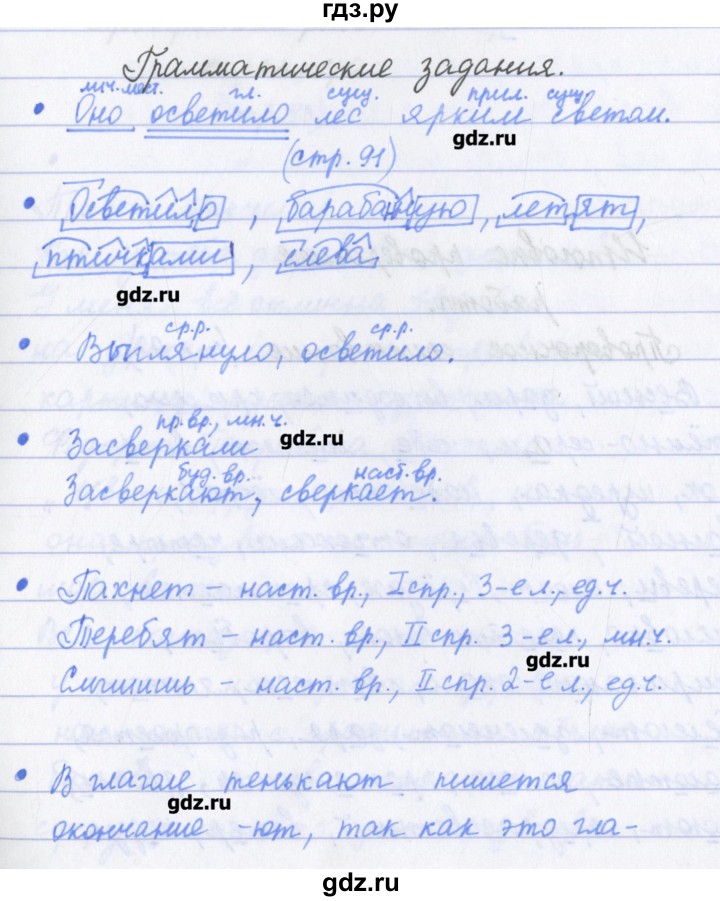 гдз.ру
Грамматические задания.
лич.мест. гл. сущ. прил. сущ.
• Оно осветило лес ярким светом.
gdz.ru
(стр. 91)
• Осветило, барабанную, летят,
птичками, слева.
gdz.ru
ср.р. ср.р.
• Выглянуло, осветило.
пр.вр., мн.ч.
• Засверкали gdz.ru
буд. вр. наст. вр.
Засверкают, сверкает.
• Пахнет – наст. вр., I спр., 3-е л., ед.ч.
Теребят – наст. вр., II спр. 3-е л., мн.ч.
gdz.ru
Слышишь – наст. вр., II спр. 2-е л., ед.ч.
• В глаголе тенькают пишется
gdz.ru
окончание -ют, так как это гла-
gdz.ru